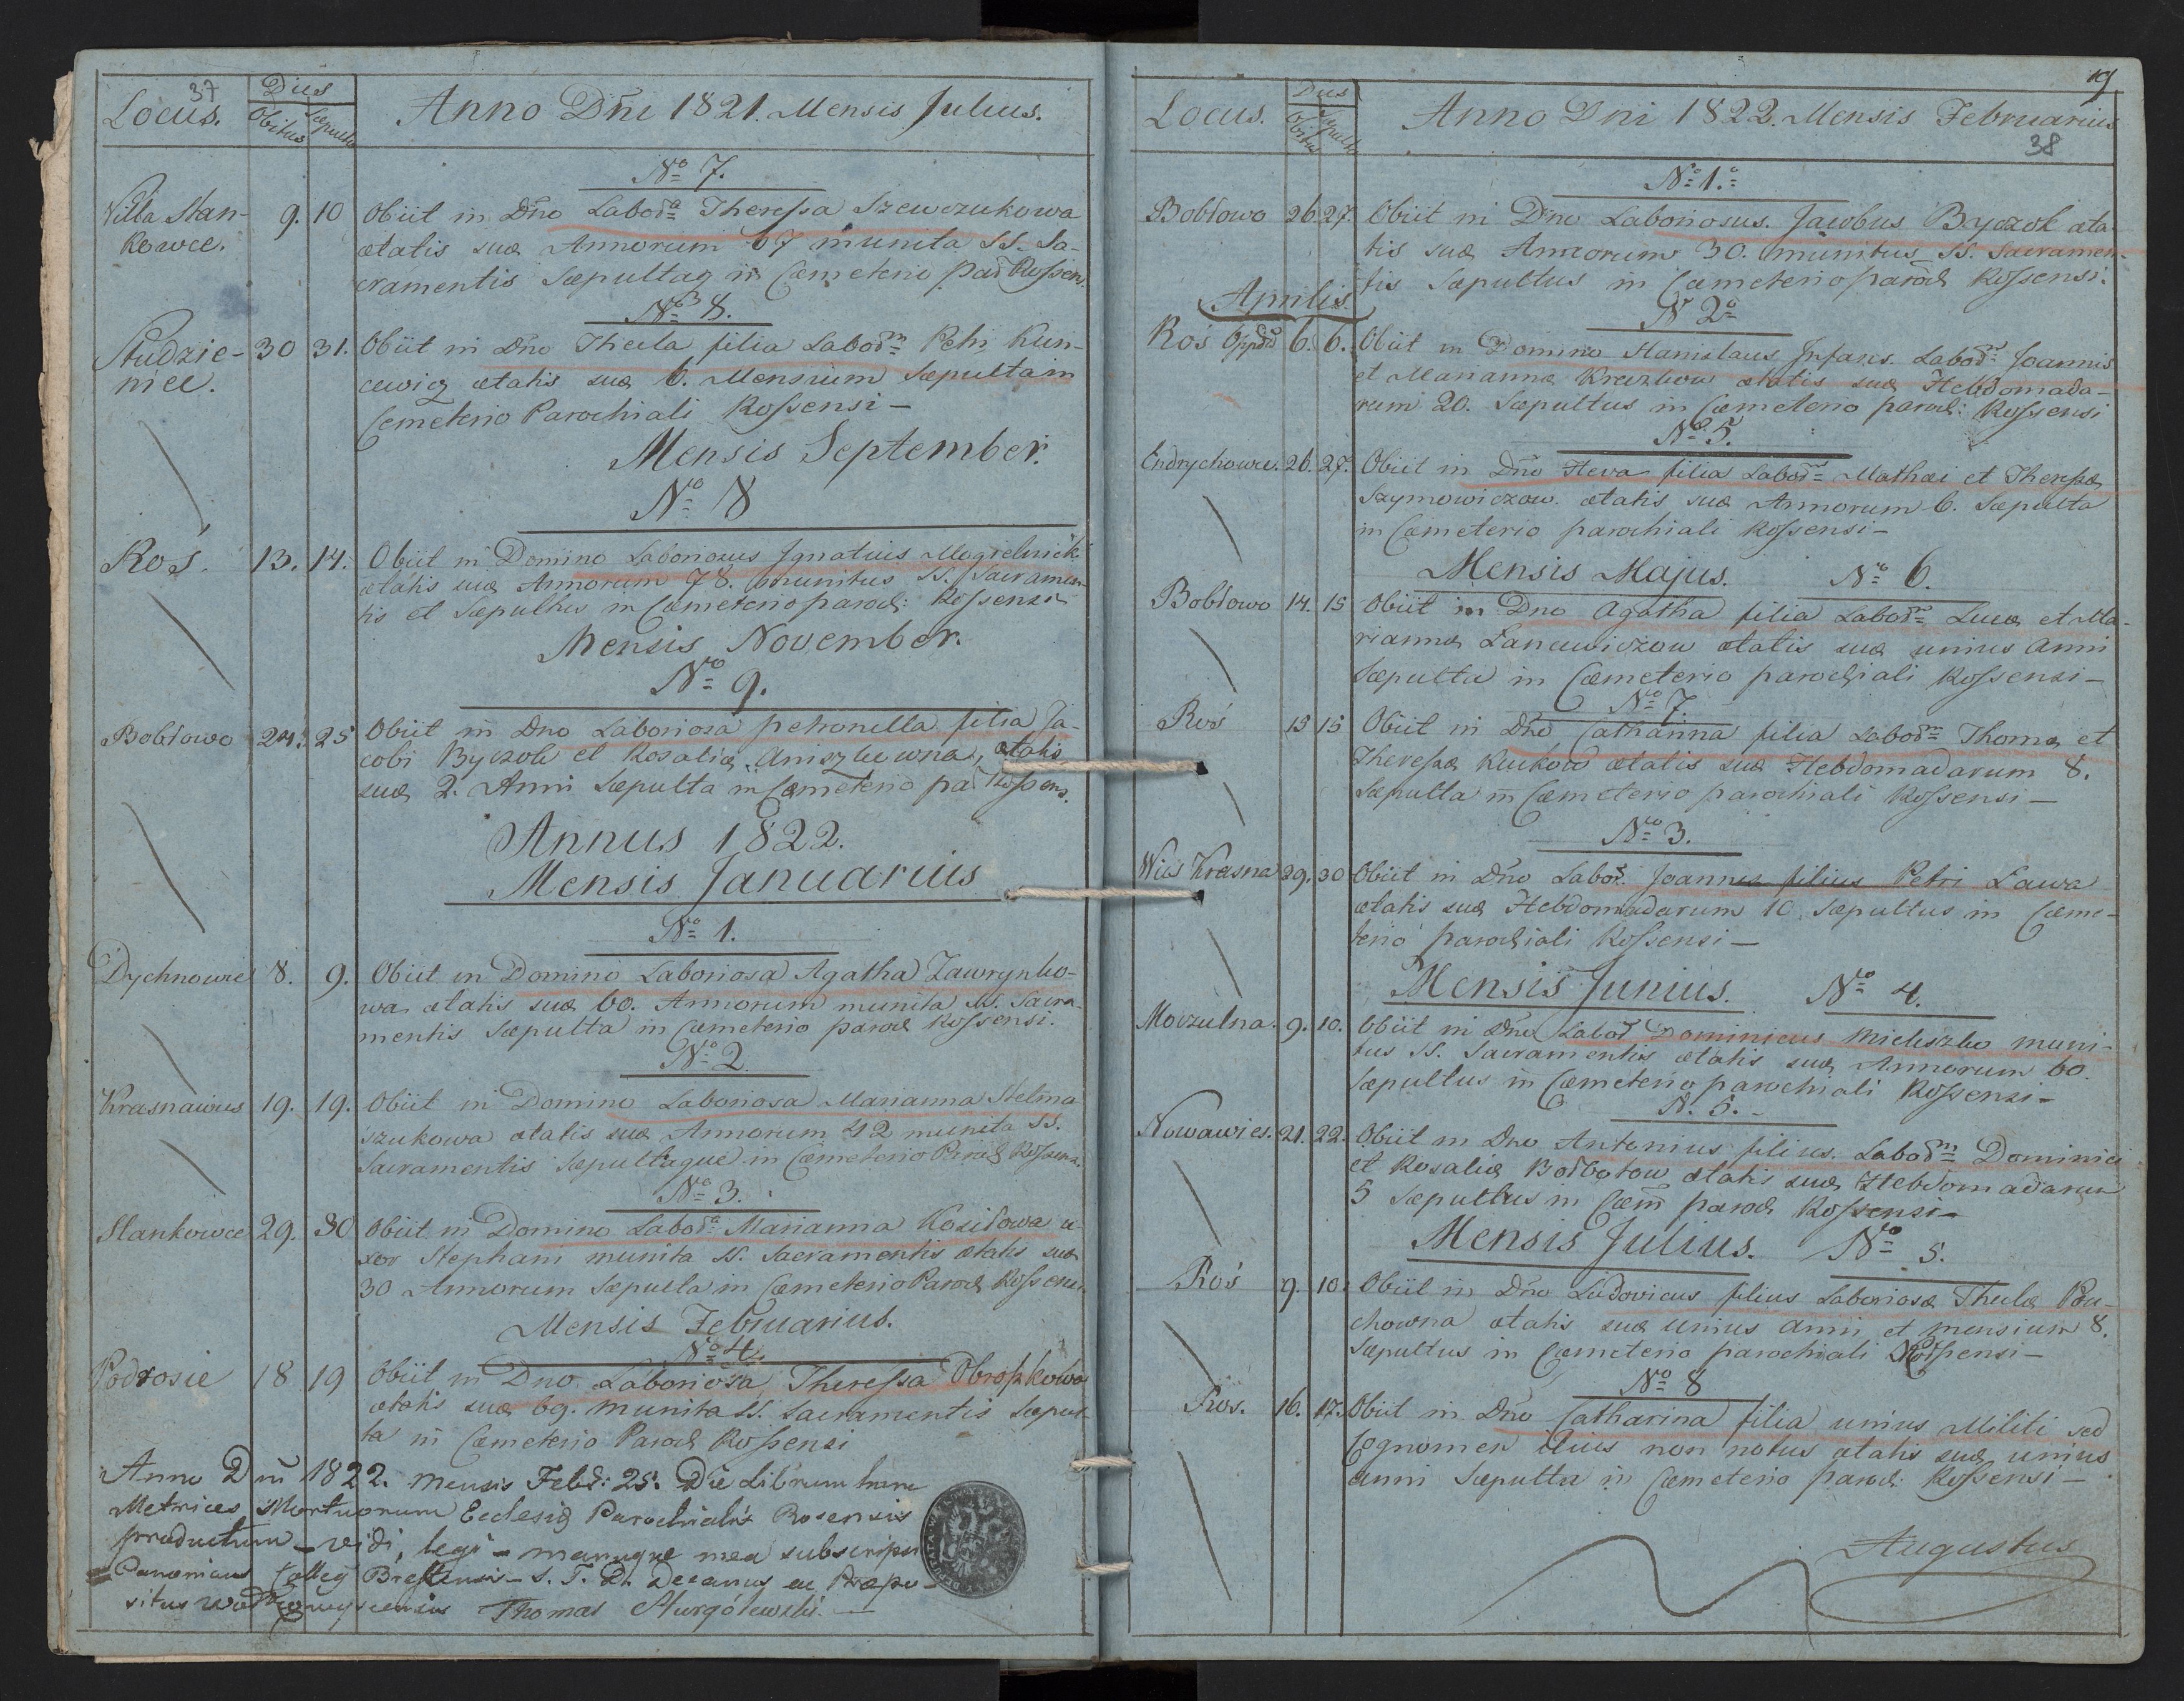 37
Locus.
Dies
Obitus
Sepultu
Anno Dni 1821. Mensis Julius.
No 7.
Villa Stan-
kowce.
9. 10
Obiit in Dno Laboda Theressa Szewczukowa
ætatis suæ Annorum 67 munita SS. Sa-
cramentis Sæpultaq in Cæmeterio par Rossens.
No 8.
Studzie-
nice.
30 31.
Obiit in Dno Thecla filia Labodm Petri Kun-
cewicz ætatis suæ 6. Mensium Sæpulta in
Cemeterio Parochiali Rossensi –
Mensis September.
No 8
Roś.
13. 14.
Obiit in Domino Laboriosus Ignatius Mogielnick
ætatis suæ Annorum 78. munitus SS. Sacramen-
tis et Sæpultus in Cæmeterio paroch: Rossensi
Mensis November.
No 9.
Bobłowo
24. 25
Obiit in Dno Laboriosa Petronella filia Ja-
cobi Byczok et Rosaliæ Aniszkiewna, ætatis
suæ 2. Anni Sæpulta in Cæmeterio par Rossens.
Annus 1822.
Mensis Januarius
No 1.
Dychnowie
8. 9.
Obiit in Domino Laboriosa Agatha Zawrynko-
wa ætatis suæ 60. Annorum munita SS. Sacra-
mentis Sæpulta in Cæmeterio paroch Rossensi.
No 2
Krasnawies
19. 19.
Obiit in Domino Laboriosa Marianna Stelma
szukowa ætatis suæ Annorum 42 munita SS.
Sacramentis Sæpultaque in Cæmeterio Paroch Rossensi.
No 3.
Stankowce
29. 30
Obiit in Domino Laboda Marianna Koziłowa u-
xor Stephani munita SS. Sacramentis ætatis suæ
30 Annorum Sæpulta in Cæmeterio Paroch Rossensi
Mensis Februarius.
No 4.
Podrosie
18 19
Obiit in Dno Laboriosa Theressa Obrępkowa
ætatis suæ 69. munita SS. Sacramentis Sæpul-
ta in Cæmeterio Paroch Rossensi
Anno Dni 1822. Mensis Febr: 25. Die Librum hunc
Metrices Mortuorum Ecclesiæ Parochialis Rosensis
productum – vidi, legi – manuque mea subscripsi
Canonicus Colleg Brestensis – S. T. D. Decanus ac Præpo-
situs Thomas
19
Locus.
Dies
Obitus
Sepultu
Anno Dni 1822. Mensis Februarius
38
No 1.
Bobłowo
26. 27.
Obiit in Dno Laboriosus. Jacobus Byczok æta-
tis suæ Annorum 30. munitus SS. Sacramen-
tis Sæpultus in Cæmeterio paroch Rossensi.
Aprilis.
N 2o
Roś Oppid
6. 6.
Obiit in Domino Stanislaus Infans. Labodm Joannis
et Mariannæ Krazkow ætatis suæ Hebdomada-
rum 20. Sæpultus in Cæmeterio paroch: Rossensi
No 5.
Endrychowce.
26. 27.
Obiit in Dno Heva filia Labodm Mathæi et Theressæ
Szymowiczow. ætatis suæ Annorum 6. Sæpulta
in Cæmeterio parochiali Rossensi –
Mensis Majus. No 6.
Bobłowo
14. 15
Obiit in Dno Agatha filia Labodm Lucæ et Ma-
riannæ Lancewiczow ætatis suæ unius Anni
Sæpulta in Cæmeterio parochiali Rossensi –
No 7
Roś
15 15
Obiit in Dno Catharina filia Labodm Thomæ et
Theressæ Kuckow ætatis suæ Hebdomadarum 8.
Sæpulta in Cæmeterio parochiali Rossensi –
No 3.
Wieś Krasna
29. 30
Obiit in Dno Labod. Joannes filius Petri Lawa
ætatis suæ Hebdomadarum 10 Sæpultus in Cæme-
terio parochiali Rossensi –
Mensis Junius. No 4.
Moczulna.
9. 10.
Obiit in Dno Labod Dominicus Mieleszko muni-
tus SS. Sacramentis ætatis suæ Annorum 60.
Sæpultus in Cæmeterio parochiali Rossensi –
N. 5.
Nowawies.
21. 22.
Obiit in Dno Antonius filius. Labodm Dominici
et Rosaliæ Bołbotow ætatis suæ Hebdomadarum
5 Sæpultus in Cæm paroch Rossensi –
Mensis Julius. No 5.
Roś
9. 10.
Obiit in Dno Ludovicus filius Laboriosæ Theclæ Pru-
chowna ætatis suæ unius anni et mensium 8.
Sæpultus in Cæmeterio parochiali Rossensi –
No 8
Ros.
16. 17.
Obiit in Dno Catharina filia unius Militi sed
Cognomen eius non notus ætatis suæ unius
anni Sæpulta in Cæmeterio paroch. Rossensi –
Augustus